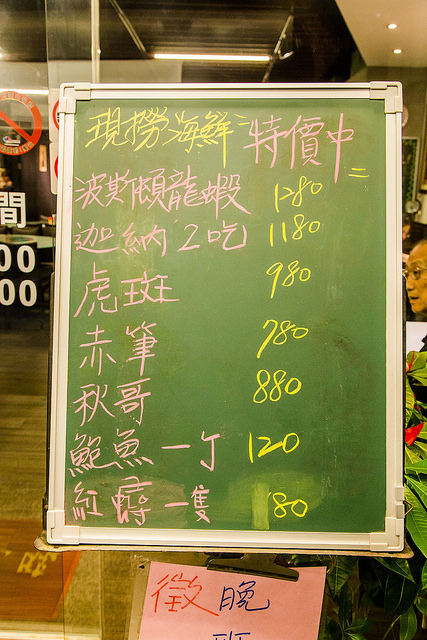 現撈海鮮=特價中=
波斯頓龍蝦 1280
迦納2吃 1180
虎斑 980
赤筆 780
秋哥 880
鮑魚一丁 120
紅蟳一隻 180
徵晚
班
間
00
00